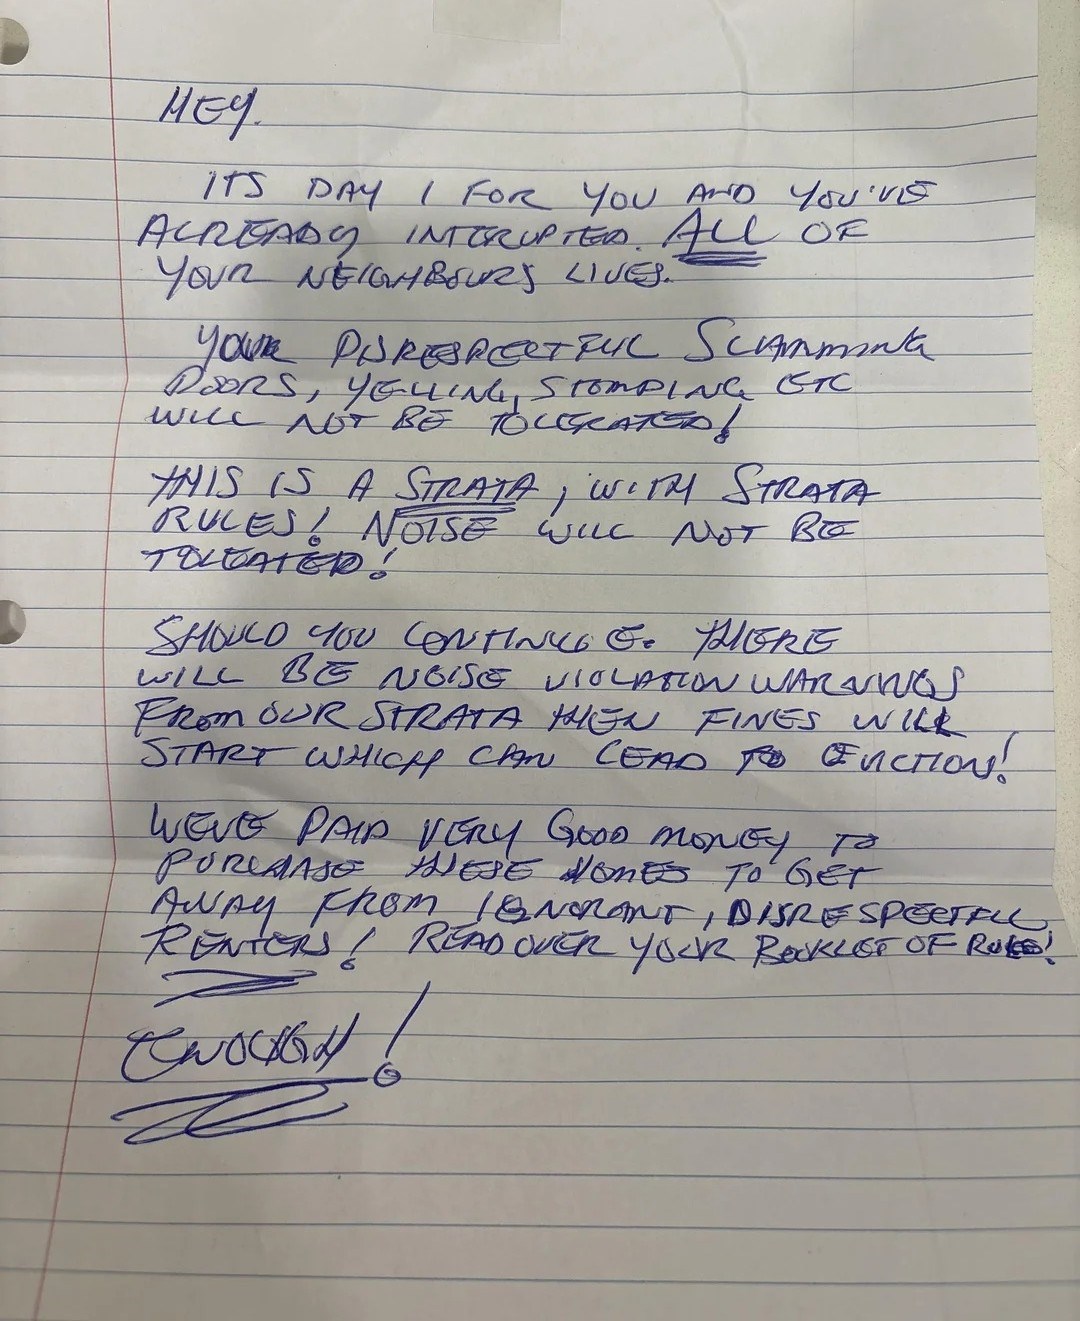 HEY.
ITS DAY 1 FOR YOU AND YOU'VE
ALREADY INTERUPTED. ALL OF
YOUR NEIGHBOURS LIVES.
YOUR DISRESPECTFUL SLAMMING
DOORS, YELLING, STOMPING ETC
WILL NOT BE TOLERATED!
THIS IS A STRATA, WITH STRATA
RULES! NOISE WILL NOT BE
TOLEATED!
SHOULD YOU CONTINUE. THERE
WILL BE NOISE VIOLATION WARNINGS
FROM OUR STRATA THEN FINES WILL
START WHICH CAN LEAD TO EVICTION!
WEVE PAID VERY GOOD MONEY TO
PURCHASE THESE HOMES TO GET
AWAY FROM IGNORANT, DISRESPECTFUL
RENTERS! READ OVER YOUR BOOKLET OF RULES!
ENOUGH!